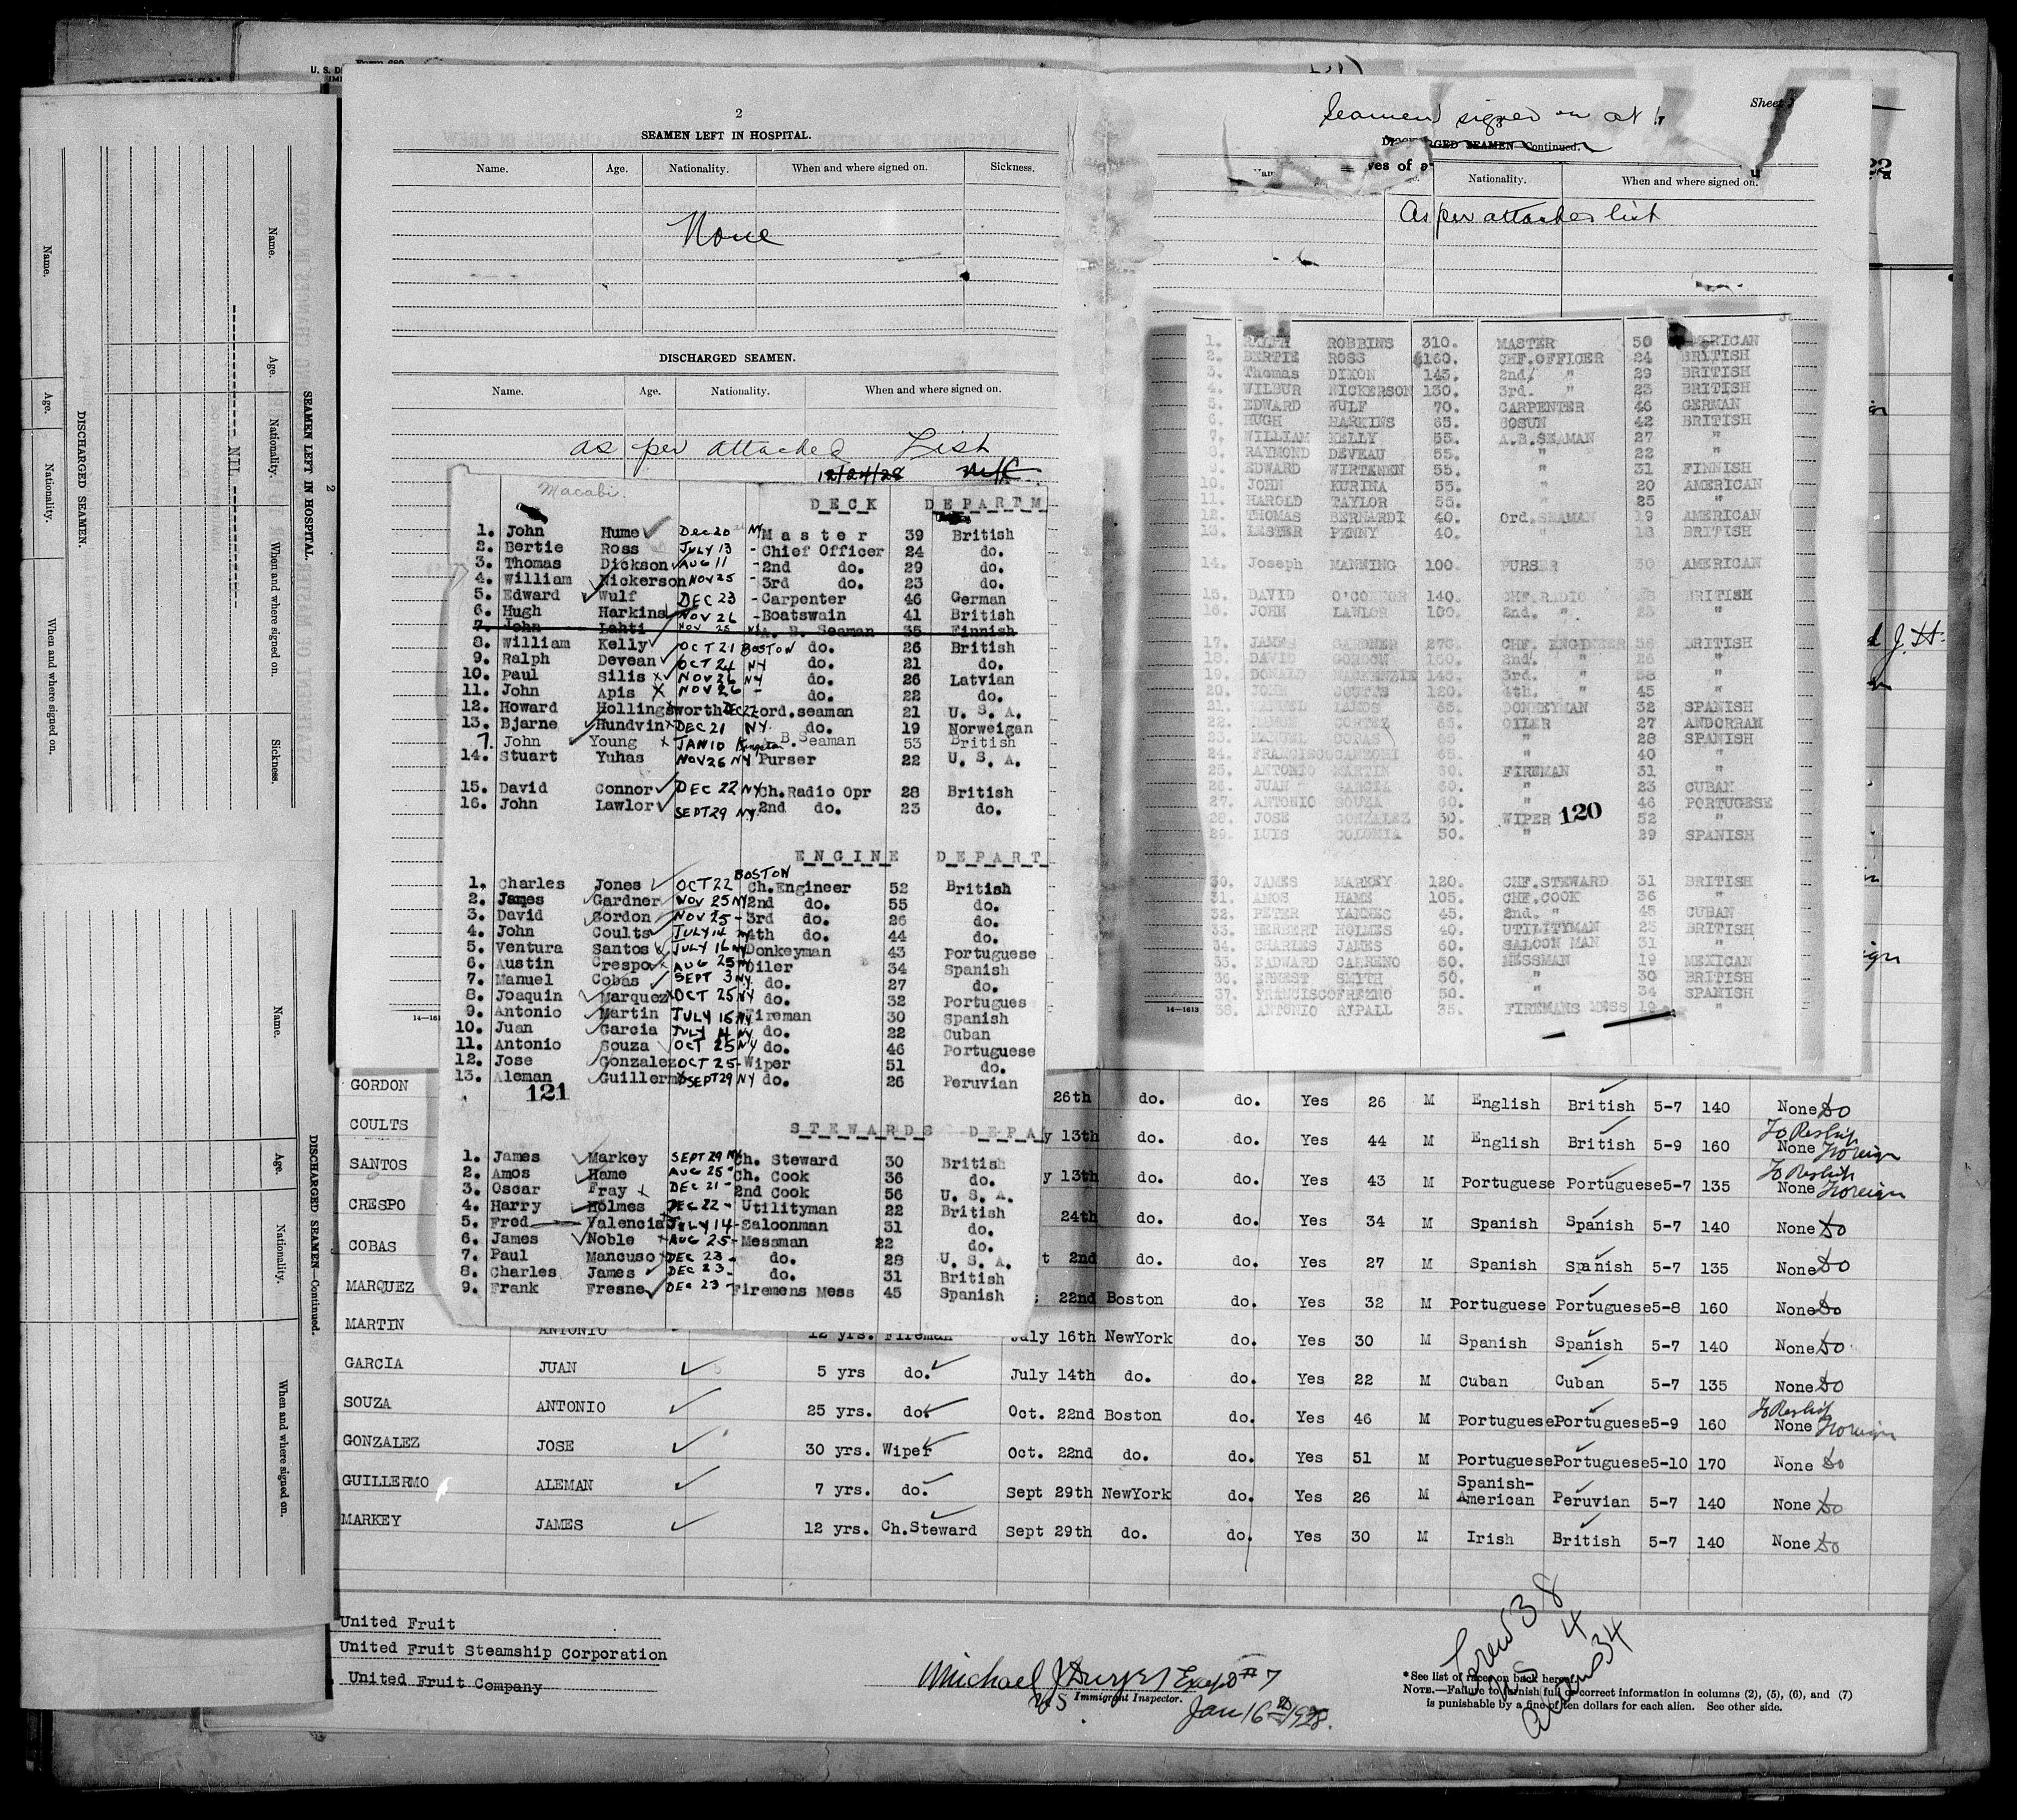 2
SEAMEN LEFT IN HOSPITAL.
Name. Age. Nationality. When and where signed on. Sickness.
None
DISCHARGED SEAMEN.
Name. Age. Nationality. When and where signed on.
as per attached List
12/24/28
Macabi.
DECK DEPARTM
1. John Hume Dec 20 NY Master 39 British
2. Bertie Ross JULY 13 - Chief Officer 24 do.
3. Thomas Dickson AUG 11 - 2nd do. 29 do.
4. William Nickerson NOV 25 - 3rd do. 23 do.
5. Edward Wulf DEC 23 - Carpenter 46 German
6. Hugh Harkins NOV 26 - Boatswain 41 British
7. John Lahti NOV 25 NY A. B. Seaman 35 Finnish
8. William Kelly OCT 21 BOSTON do. 26 British
9. Ralph Devean OCT 24 NY do. 21 do.
10. Paul Silis x NOV 26 NY do. 26 Latvian
11. John Apis x NOV 26 - do. 22 do.
12. Howard Hollingsworth DEC 22 - ord.seaman 21 U. S. A.
13. Bjarne Hundvin x DEC 21 NY. do. 19 Norweigan
7. John Young x JAN 10 Kingston B.Seaman 53 British
14. Stuart Yuhas NOV 26 NY Purser 22 U. S. A.
15. David Connor DEC 22 NY Ch.Radio Opr 28 British
16. John Lawlor SEPT 29 N.Y. 2nd do. 23 do.
ENGINE DEPART
1. Charles Jones OCT 22 BOSTON Ch.Engineer 52 British
2. James Gardner NOV 25 NY 2nd do. 55 do.
3. David Gordon NOV 25 - 3rd do. 26 do.
4. John Coults JULY 14 NY 4th do. 44 do.
5. Ventura Santos x JULY 16 NY Donkeyman 43 Portuguese
6. Austin Crespo x AUG 25 NY Oiler 34 Spanish
7. Manuel Cobas SEPT 3 NY. do. 27 do.
8. Joaquin Marquez x OCT 25 NY do. 32 Portugues
9. Antonio Martin JULY 16 NY Fireman 30 Spanish
10. Juan Garcia JULY 14 NY do. 22 Cuban
11. Antonio Souza OCT 25 NY do. 46 Portuguese
12. Jose Gonzalez OCT 25 - Wiper 51 do.
13. Aleman Guillermo SEPT 29 NY do. 26 Peruvian
121
STEWARDS DEPA
1. James Markey SEPT 29 NY Ch. Steward 30 British
2. Amos Hame AUG 25 - Ch. Cook 36 do.
3. Oscar Fray x DEC 21 - 2nd Cook 56 U. S. A.
4. Harry Holmes DEC 22 - Utilityman 22 British
5. Fred Valencia JULY 14 - Saloonman 31 do.
6. James Noble x AUG 25 - Messman 22 do.
7. Paul Mancuso x DEC 23 - do. 28 U. S. A.
8. Charles James DEC 23 - do. 31 British
9. Frank Fresne DEC 23 - Firemens Mess 45 Spanish
Sheet
Seamen signed on at
DISCHARGED SEAMEN—Continued.
ves of a
Nationality. When and where signed on.
As per attached list
1. RALPH ROBBINS 310. MASTER 50 AMERICAN
2. BERTIE ROSS $160. CHF.OFFICER 24 BRITISH
3. Thomas DIXON 145. 2nd. " 29 BRITISH
4. WILBUR NICKERSON 130. 3rd. " 23 BRITISH
5. EDWARD WULF 70. CARPENTER 46 GERMAN
6. HUGH HARKINS 65. BOSUN 42 BRITISH
7. WILLIAM KELLY 55. A.B.SEAMAN 27 "
8. RAYMOND DEVEAU 55. " 22 "
9. EDWARD WIRTENEN 55. " 31 FINNISH
10. JOHN KURINA 55. " 20 AMERICAN
11. HAROLD TAYLOR 55. " 25 "
12. THOMAS BERNARDI 40. Ord.SEAMAN 19 AMERICAN
13. LESTER PENNY 40. " 18 BRITISH
14. Joseph MANNING 100. PURSER 30 AMERICAN
15. DAVID O'CONNOR 140. CHF.RADIO BRITISH
16. JOHN LAWLOR 100. 2nd. " 23 "
17. JAMES GARDNER 276. CHF. ENGINEER 56 BRITISH
18. DAVID GORDON 160. 2nd. " 26 "
19. DONALD MACKENZIE 145. 3rd. " 58 "
20. JOHN COUTTS 120. 4th. " 45 "
21. MANUEL LAMOS 65. DONKEYMAN 32 SPANISH
22. CORTEZ 65. OILER 27 ANDORRAN
23. MANUEL COBAS 65 " 28 SPANISH
24. FRANCISCO 65. " 40 "
25. ANTONIO MARTIN 60. FIREMAN 31 "
26. JUAN GARCIA 60. " 23 CUBAN
27. ANTONIO SOUZA 60. " 46 PORTUGESE
28. JOSE GONZALEZ 50. WIPER 52 "
29. LUIS COLOMIA 50. " 29 SPANISH
120
30. JAMES MARKEY 120. CHF.STEWARD 31 BRITISH
31. AMOS HAME 105. CHF.COOK 36 "
32. PETER YANNES 45. 2nd. " 45 CUBAN
33. HERBERT HOLMES 40. UTILITYMAN 23 BRITISH
34. CHARLES JAMES 60. SALOON MAN 31 "
35. EADWARD CARRENO 50. MESSMAN 19 MEXICAN
36. ERNEST SMITH 50. " 30 BRITISH
37. FRANCISCO FREZNO 50. " 34 SPANISH
38. ANTONIO RIPALL 35. FIREMANS MESS 19 "
14—1613
GORDON 26th do. do. Yes 26 M English British 5-7 140 None Do
COULTS y 13th do. do. Yes 44 M English British 5-9 160 None To Reship Foreign
SANTOS y 13th do. do. Yes 43 M Portuguese Portuguese 5-7 135 None To Reship Foreign
CRESPO 24th do. do. Yes 34 M Spanish Spanish 5-7 140 None Do
COBAS t 2nd do. do. Yes 27 M Spanish Spanish 5-7 135 None Do
MARQUEZ 22nd Boston do. Yes 32 M Portuguese Portuguese 5-8 160 None Do
MARTIN ANTONIO 12 yrs. Fireman July 16th NewYork do. Yes 30 M Spanish Spanish 5-7 140 None Do
GARCIA JUAN 5 yrs do. July 14th do. do. Yes 22 M Cuban Cuban 5-7 135 None Do
SOUZA ANTONIO 25 yrs. do. Oct. 22nd Boston do. Yes 46 M Portuguese Portuguese 5-9 160 None To Reship Foreign
GONZALEZ JOSE 30 yrs. Wiper Oct. 22nd do. do. Yes 51 M Portuguese Portuguese 5-10 170 None Do
GUILLERMO ALEMAN 7 yrs. do. Sept 29th NewYork do. Yes 26 M Spanish-American Peruvian 5-7 140 None Do
MARKEY JAMES 12 yrs. Ch.Steward Sept 29th do. do. Yes 30 M Irish British 5-7 140 None Do
United Fruit
United Fruit Steamship Corporation
United Fruit Company
Immigrant Inspector.
Jan 16th 1928.
Crew 38
U S 4
Aliens 34
*See list of races on back hereof.
NOTE.—Failure to furnish full or correct information in columns (2), (5), (6), and (7)
is punishable by a fine of ten dollars for each alien. See other side.
2
SEAMEN LEFT IN HOSPITAL.
Name. Age. Nationality. When and where signed on. Sickness.
NIL
DISCHARGED SEAMEN.
Name. Age. Nationality. When and where signed on.
DISCHARGED SEAMEN—Continued.
Name. Age. Nationality. When and where signed on.